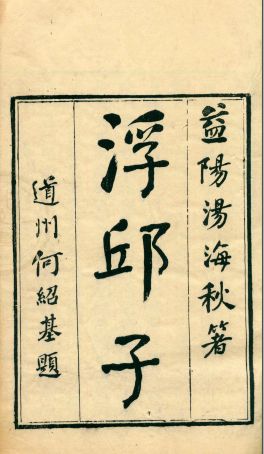 益陽湯海秋箸
浮邱子
道州何紹基題